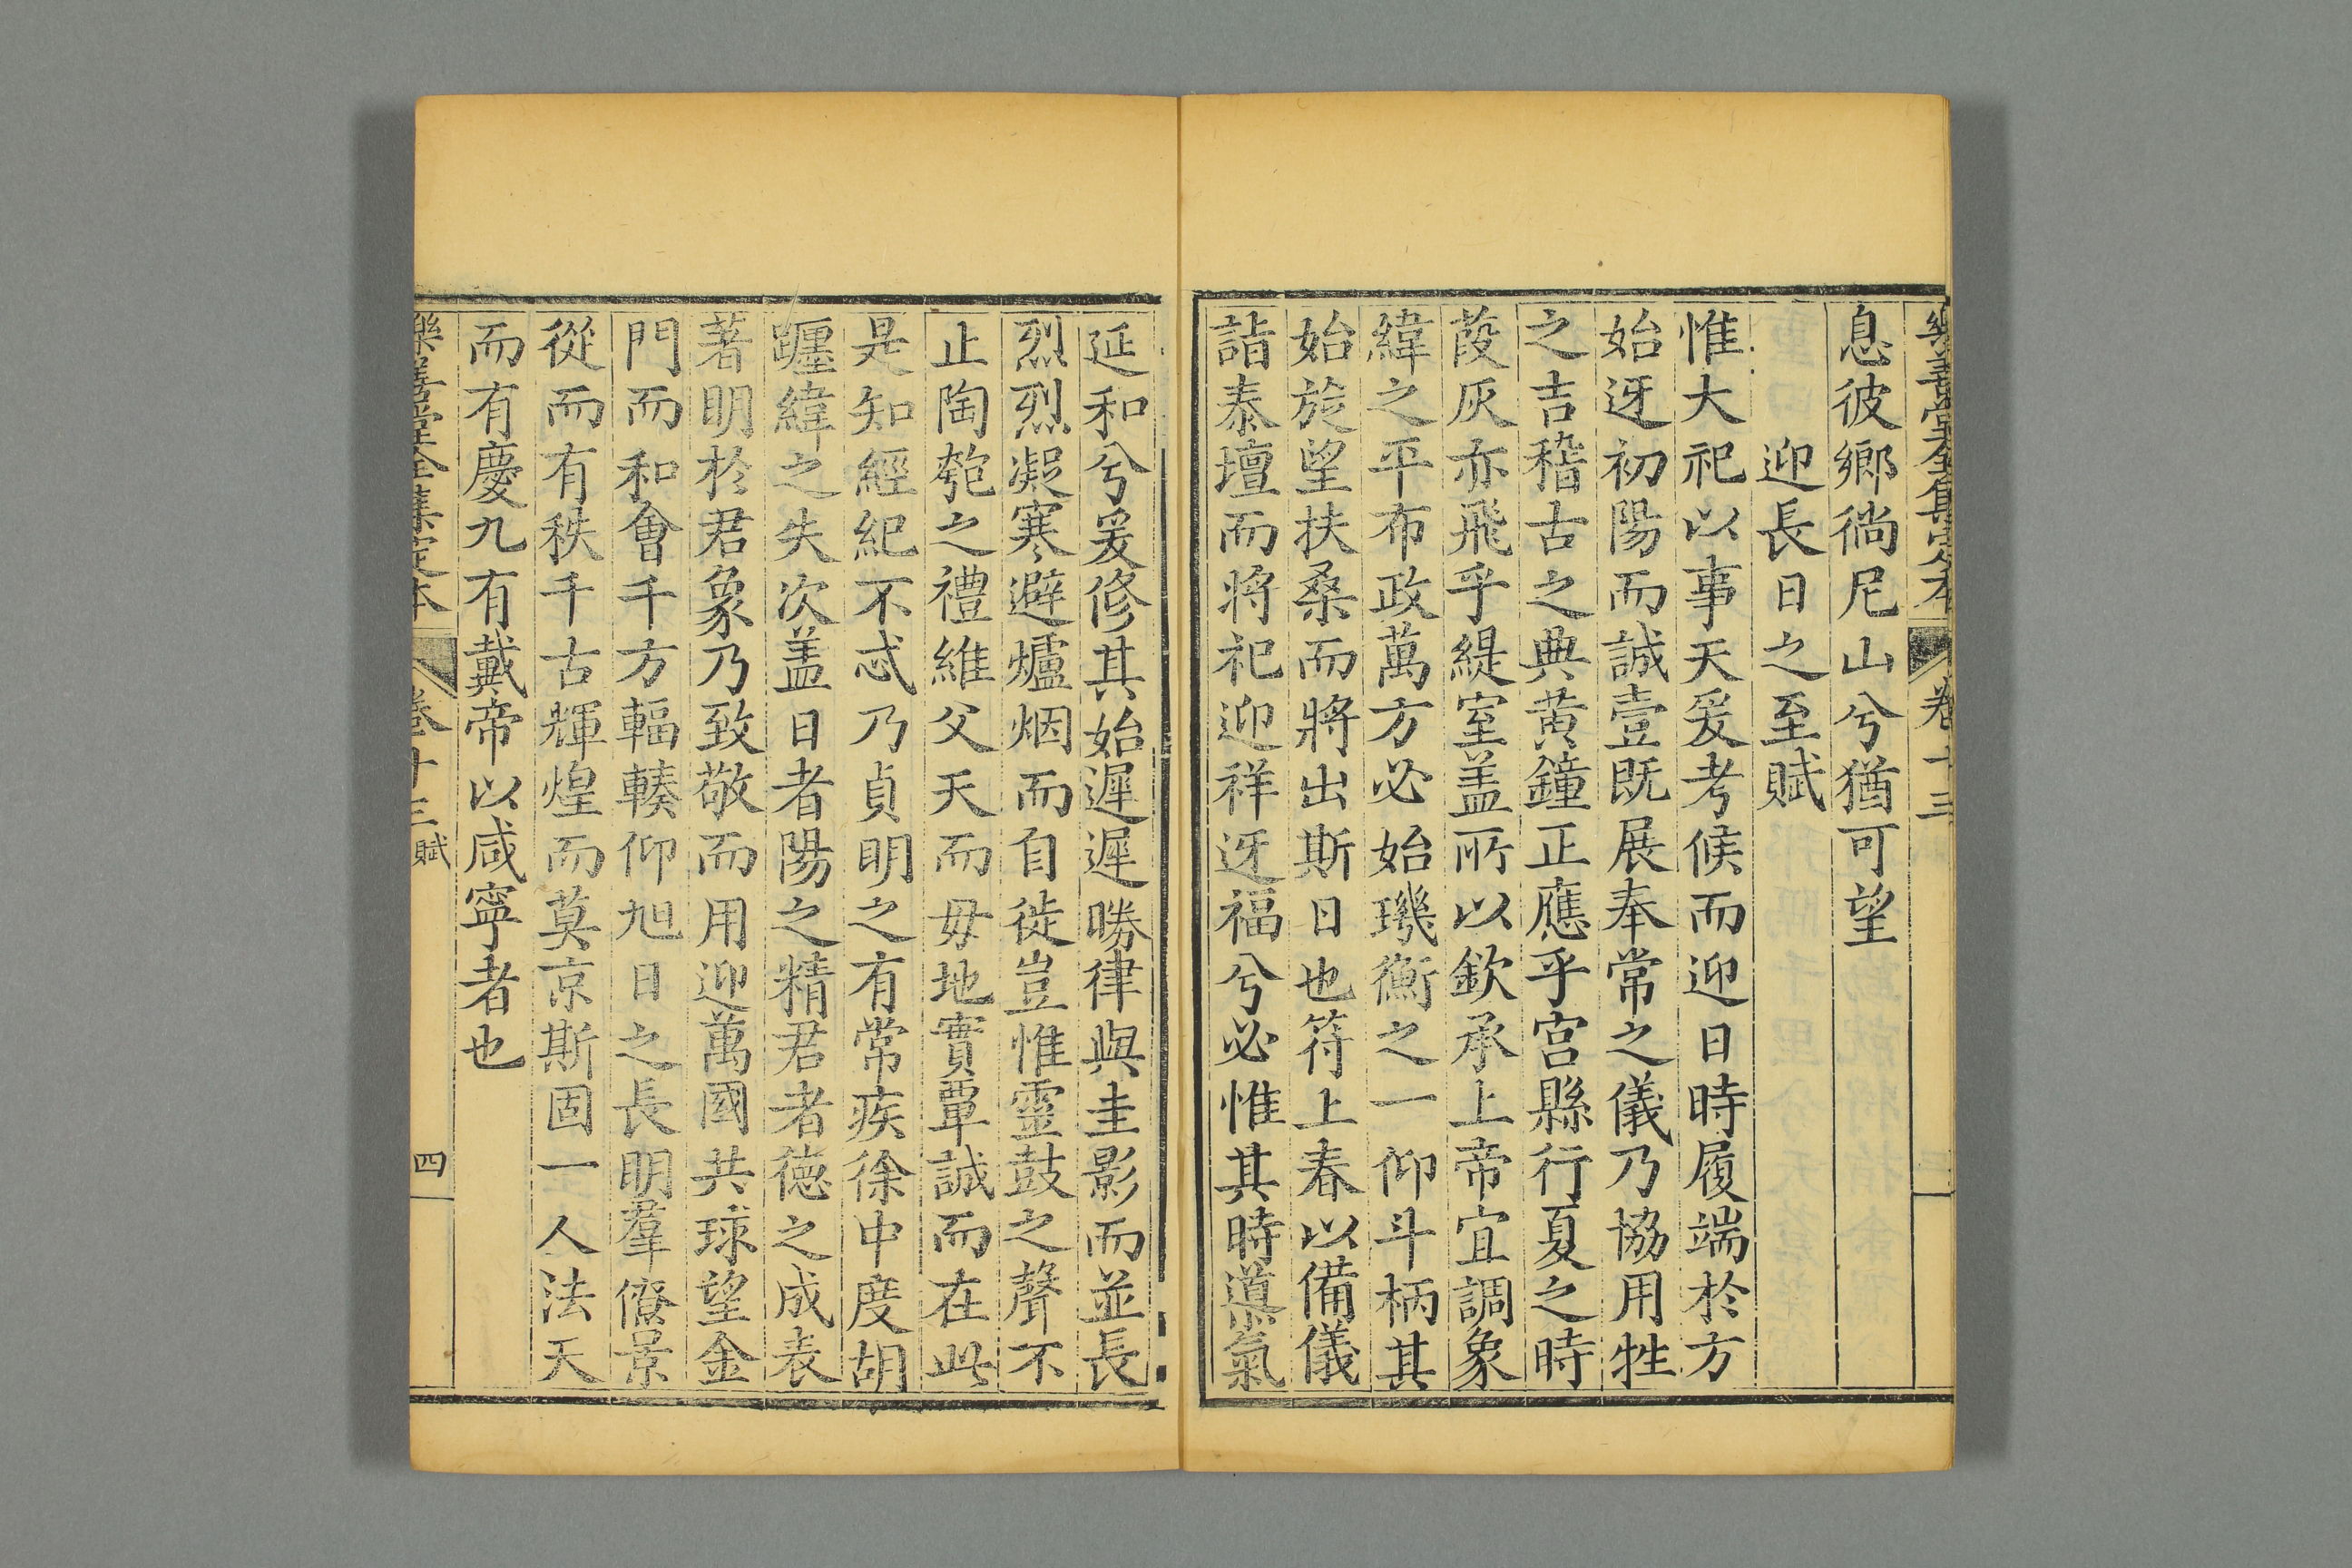 樂善堂全集定本 卷十三
息彼鄉徜尼山兮猶可望
迎長日之至賦
惟大祀以事天爰考候而迎日時履端於方
始迓初陽而誠壹既展奉常之儀乃協用牲
之吉稽古之典黃鐘正應乎宮縣行夏之時
葭灰亦飛乎緹室盖所以欽承上帝宜調象
緯之平布政萬方必始璣衡之一仰斗柄其
始旋望扶桑而將出斯日也符上春以備儀
詣泰壇而將祀迎祥迓福兮必惟其時導氣
延和兮爰修其始遲遲勝律與圭影而並長
烈烈凝寒避爐烟而自徙豈惟靈鼓之聲不
止陶匏之禮維父天而毋地實覃誠而在此
是知經紀不忒乃貞明之有常疾徐中度胡
躔緯之失次盖日者陽之精君者德之成表
著明於君象乃致敬而用迎萬國共球望金
門而和會千方輻輳仰旭日之長明羣僚景
從而有秩千古輝煌而莫京斯固一人法天
而有慶九有戴帝以咸寧者也
樂善堂全集定本 卷十三 賦 四